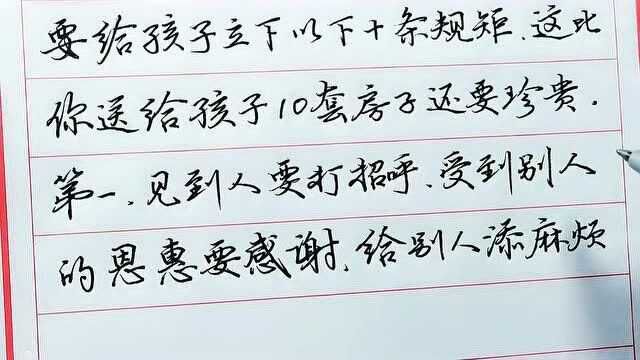 要给孩子立下以下十条规矩.这比
你送给孩子10套房子还要珍贵.
第一.见到人要打招呼.受到别人
的恩惠要感谢.给别人添麻烦